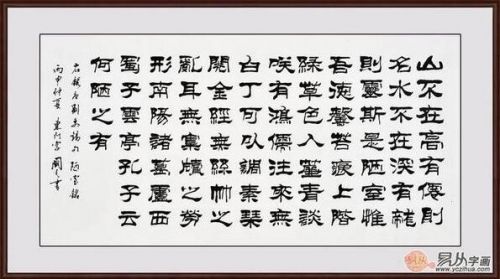 山不在高有僊則
名水不在深有龍
則靈斯是陋室惟
吾德馨苔痕上階
綠草色入簾青談
咲有鴻儒往來無
白丁可以調素琴
閱金經無絲竹之
亂耳無案牘之勞
形南陽諸葛廬西
蜀子雲亭孔子云
何陋之有
右錄唐劉禹錫 陋室銘
丙申仲夏 書
易从字画
www.yczihua.com